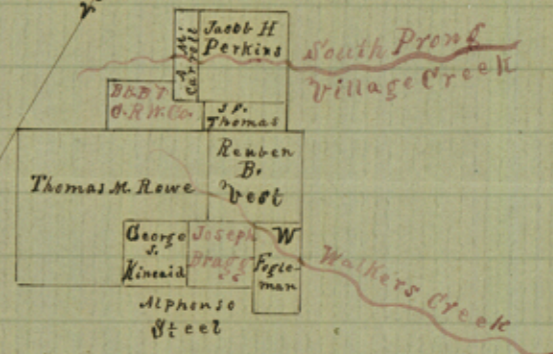 Jacob H
Perkins
A. M.
Carroll
South Prong
Village Creek
BBB &
C.R.W.Co.
J. P.
Thomas
Reuben
B.
Vest
Thomas M. Rowe
George
J.
Kincaid
Joseph
Bragg
W
Fogle-
man
Walkers Creek
Alphonso
Steel